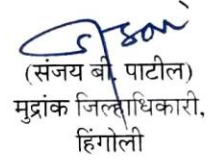 (संजय बी. पाटील)
मुद्रांक जिल्हाधिकारी,
हिंगोली